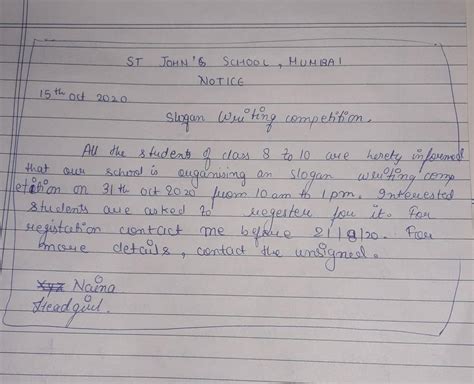 ST JOHN'S SCHOOL, MUMBAI
NOTICE
15th oct 2020
Slogan Writing competition.
All the students of class 8 to 10 are herety informed
that our school is organising an slogan writing comp
etition on 31th oct 2020 from 10 am to 1 pm. Interested
students are asked to regester for it. For
registation contact me before 21/8/20. For
more details, contact the unsigned.
xyz Naina
Headgirl.